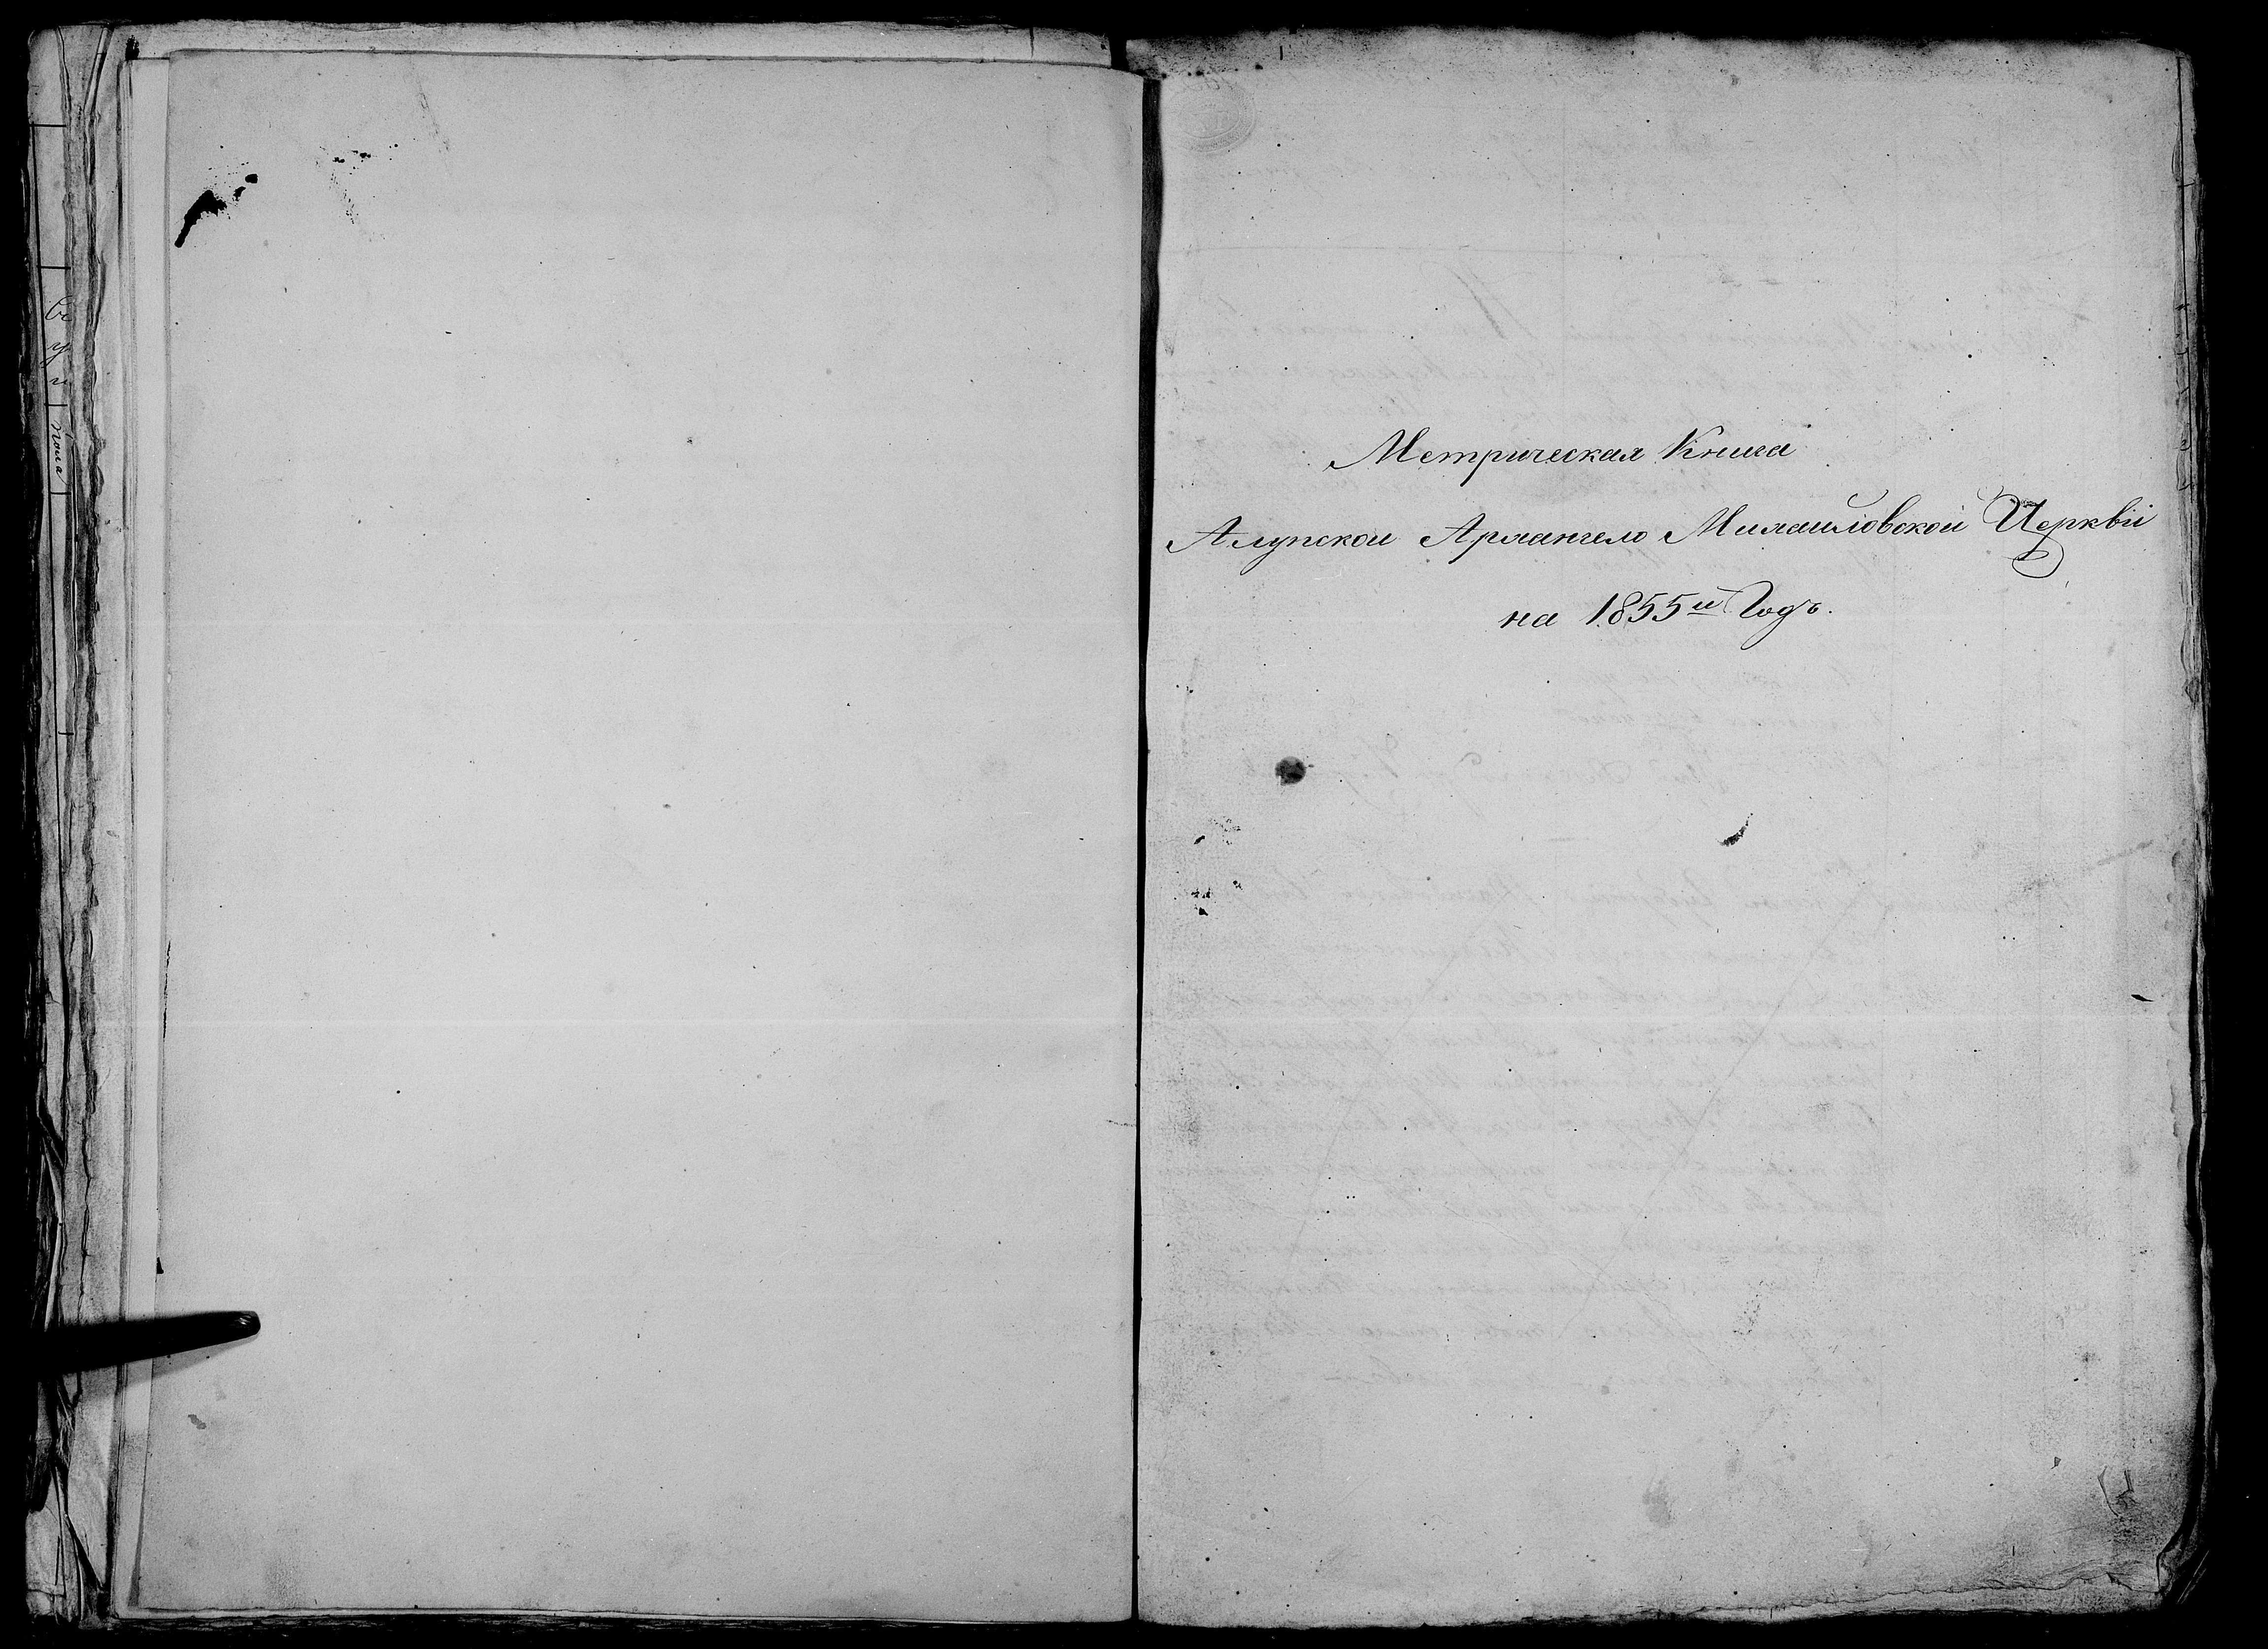 пола
Метрическая Книга
Алупской Архангело Михайловской Церквіи
на 1855й Годъ.